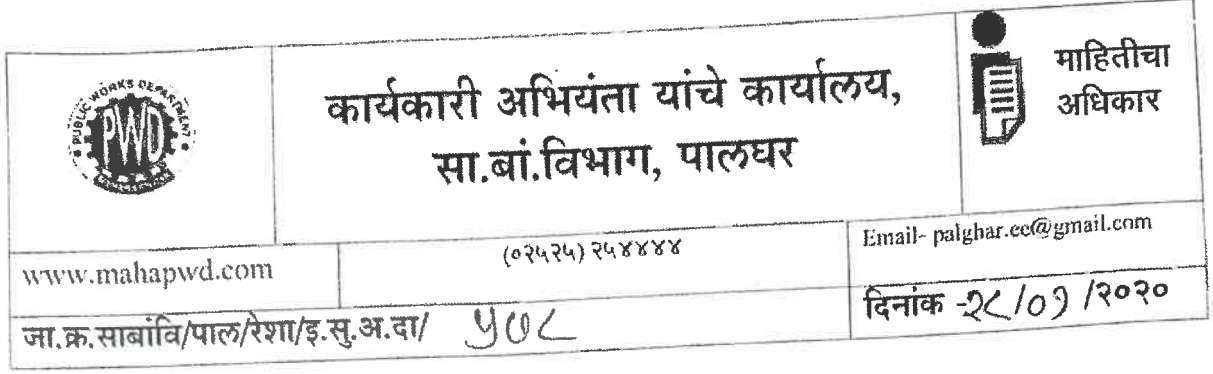 PUBLIC WORKS DEPARTMENT
PWD
कार्यकारी अभियंता यांचे कार्यालय,
सा.बां.विभाग, पालघर
माहितीचा
अधिकार
www.mahapwd.com
(०२५२५) २५४४४४
Email- palghar.ee@gmail.com
जा.क्र.साबांवि/पाल/रेशा/इ.सु.अ.दा/ ५७८
दिनांक -२८/०१/२०२०